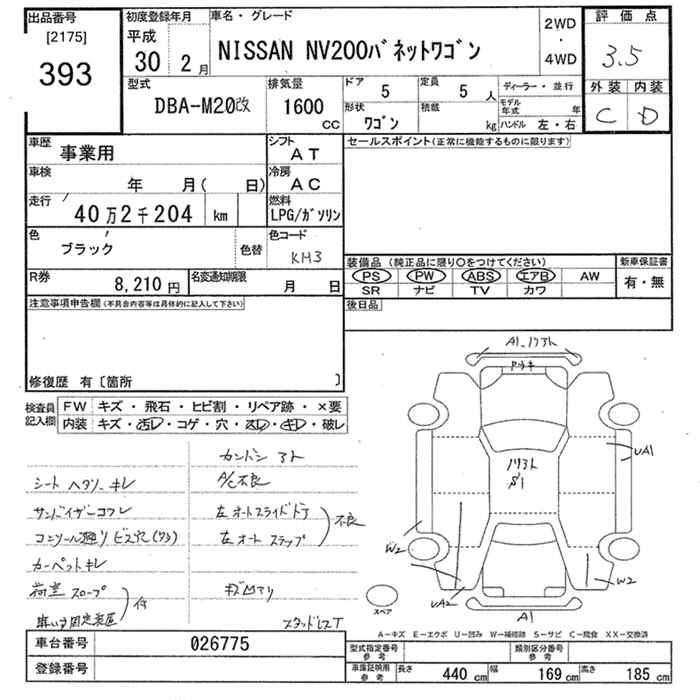 出品番号
[2175]
393
初度登録年月
平成
30 2 月
車名・グレード
NISSAN NV200バネットワゴン
2WD
・
4WD
評価点
3.5
型式
DBA-M20改
排気量
1600
CC
ドア
5
定員
5 人
ディーラー・並行
外装 内装
C D
形状
ワゴン
積載
kg
モデル年式
年
ハンドル 左・右
車歴
事業用
シフト
AT
セールスポイント(正常に機能するものに限ります)
車検
年 月( 日)
冷房
AC
走行
40万2千204 km
燃料
LPG/ガソリン
色
ブラック
色替
色コード
KH3
装備品(純正品に限り○をつけてください)
PS PW ABS エアB AW
SR ナビ TV カワ
新車保証書
有・無
R券
8,210 円
名変通知期限
月 日
後日品
注意事項申告欄(不具合内容等は具体的に記入して下さい)
修復歴 有〔箇所 〕
検査員
記入欄
FW キズ・飛石・ヒビ割・リペア跡・×要
内装 キズ・汚レ・コゲ・穴・スレ・キレ・破レ
シートヘタリ・キレ
サンバイザーコワレ
コンソール廻りビス穴(タタ)
カーペットキレ
荷室スロープ
車いす固定装置
付
カンバン アト
A/C不良
左オートスライドドア
左オートステップ
不良
キズ凹アリ
スタッドレスT
A1.ソリスト
UA1
W2
UA2
W2
A1
S1
スペア
A-キズ E-エクボ U-凹み W-補修跡 S-サビ C-腐食 XX-交換済
車台番号
026775
登録番号
型式指定番号
参考
類別区分番号
参考
車庫証明用
参考
長さ 440 cm 幅 169 cm 高さ 185 cm